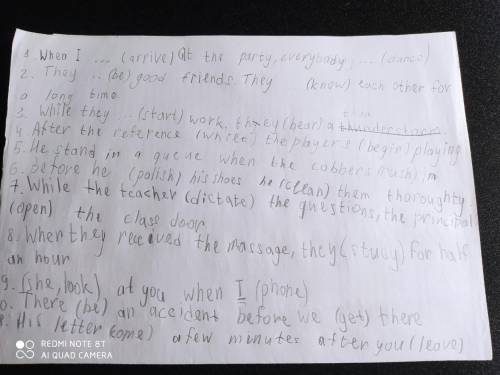 1. When I ... (arrive) at the party, everybody ... (dance)
2. They .. (be) good friends. They (know) each other for
a long time
3. While they ... (start) work, they (hear) a thunderstorm
4. After the reference (whitet) the players (begin) playing
5. He stand in a queue when the cobbers (rush) in
6. Before he (polish) his shoes he (clean) them thoroughly
7. While the teacher (dictate) the questions, the principal
(open) the class door
8. When they received the massage, they (study) for half
an hour
9. (she, look) at you when I (phone)
0. There (be) an accident before we (get) there
His letter (come) a few minutes after you (leave)
REDMI NOTE 8T
AI QUAD CAMERA